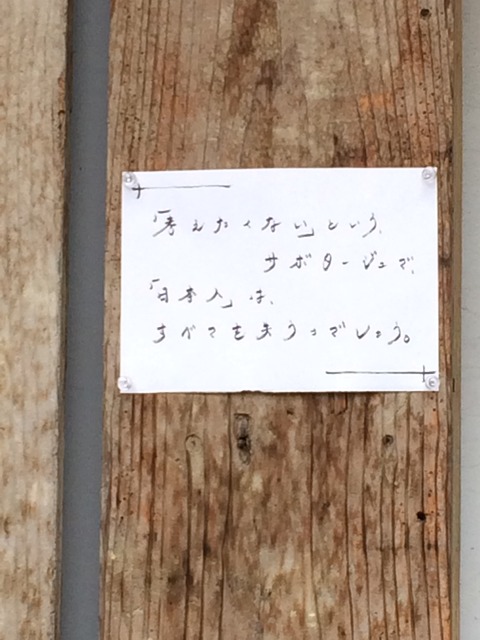 「考えたくない」という、
サボタージュで、
「日本人」は、
すべてを失うことでしょう。